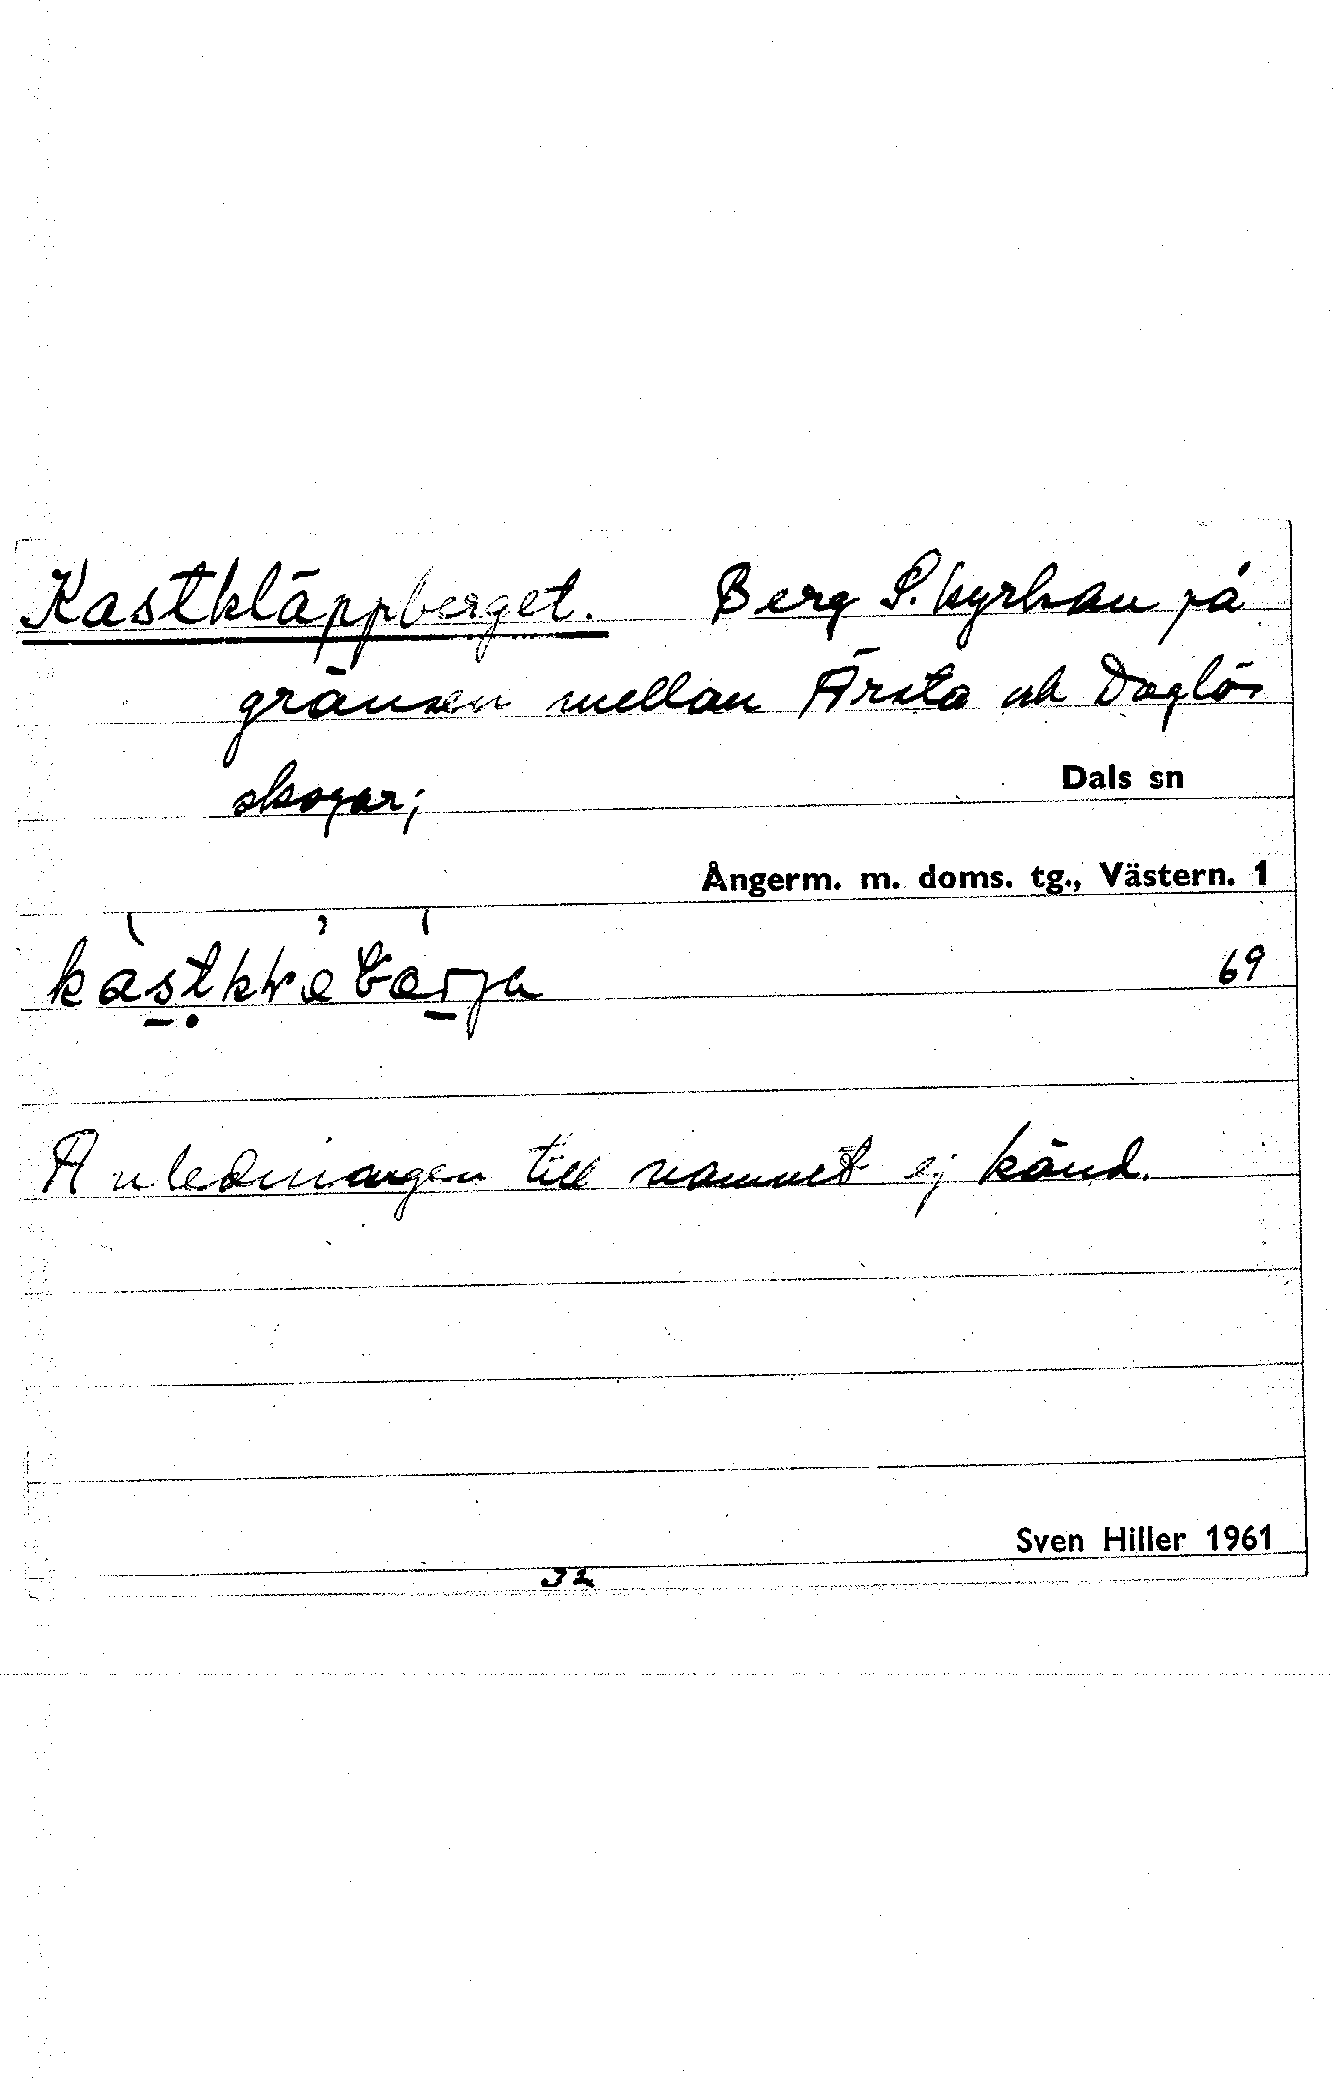 Kastkläppberget. Berg S. kyrkan på
gränsen mellan Ärsta och Doglös
skogar;
Dals sn
Ångerm. m. doms. tg., Västern. 1
69
Anledningen till namnet ej känd.
Sven Hiller 1961
32